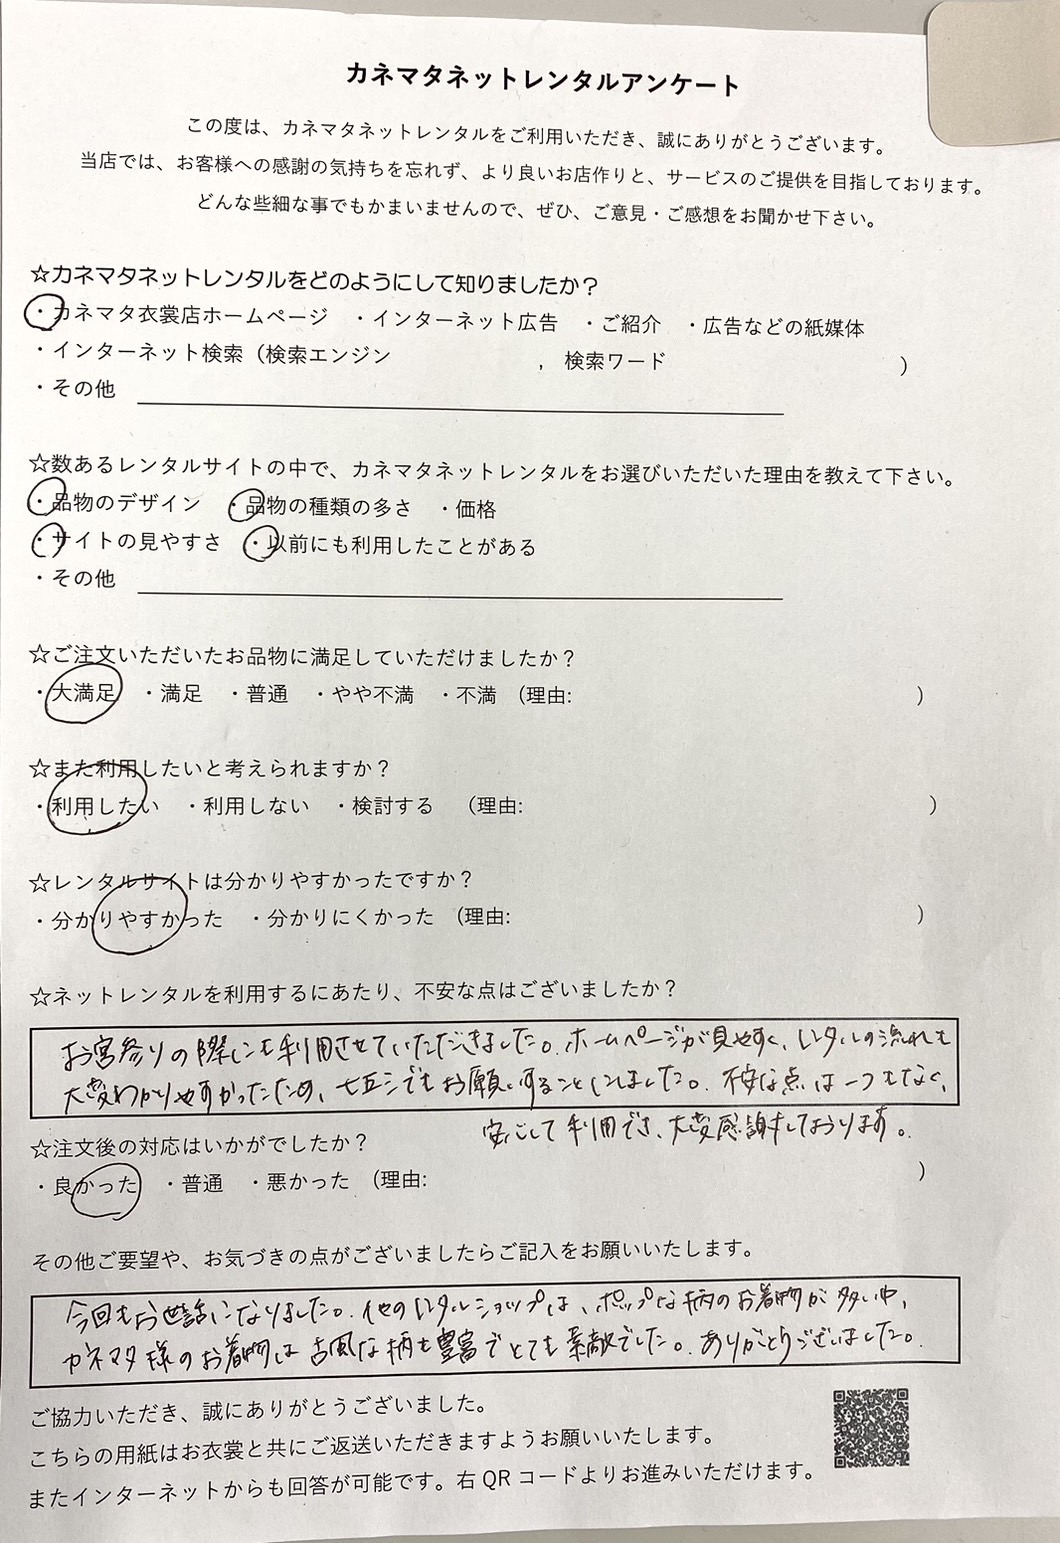 カネマタネットレンタルアンケート
この度は、カネマタネットレンタルをご利用いただき、誠にありがとうございます。
当店では、お客様への感謝の気持ちを忘れず、より良いお店作りと、サービスのご提供を目指しております。
どんな些細な事でもかまいませんので、ぜひ、ご意見・ご感想をお聞かせ下さい。
☆カネマタネットレンタルをどのようにして知りましたか？
・カネマタ衣裳店ホームページ ・インターネット広告 ・ご紹介 ・広告などの紙媒体
・インターネット検索（検索エンジン ，検索ワード ）
・その他
☆数あるレンタルサイトの中で、カネマタネットレンタルをお選びいただいた理由を教えて下さい。
・品物のデザイン ・品物の種類の多さ ・価格
・サイトの見やすさ ・以前にも利用したことがある
・その他
☆ご注文いただいたお品物に満足していただけましたか？
・大満足 ・満足 ・普通 ・やや不満 ・不満 （理由: ）
☆また利用したいと考えられますか？
・利用したい ・利用しない ・検討する （理由: ）
☆レンタルサイトは分かりやすかったですか？
・分かりやすかった ・分かりにくかった （理由: ）
☆ネットレンタルを利用するにあたり、不安な点はございましたか？
お宮参りの際にも利用させていただきました。ホームページが見やすく、レンタルの流れも
大変わかりやすかったため、七五三でもお願いすることにしました。不安な点は一つもなく、
安心して利用でき、大変感謝しております。
☆注文後の対応はいかがでしたか？
・良かった ・普通 ・悪かった （理由: ）
その他ご要望や、お気づきの点がございましたらご記入をお願いいたします。
今回もお世話になりました。他のレンタルショップは、ポップな柄のお着物が多い中、
カネマタ様のお着物は古風な柄も豊富でとても素敵でした。ありがとうございました。
ご協力いただき、誠にありがとうございました。
こちらの用紙はお衣裳と共にご返送いただきますようお願いいたします。
またインターネットからも回答が可能です。右QRコードよりお進みいただけます。